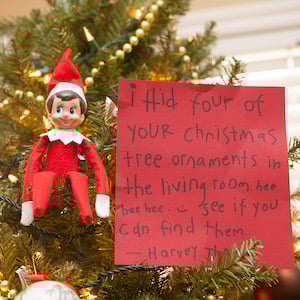 i Hid four of
YOUR christmas
tree ornaments in
the living room hee
hee hee. see if you
can find them.
— Harvey